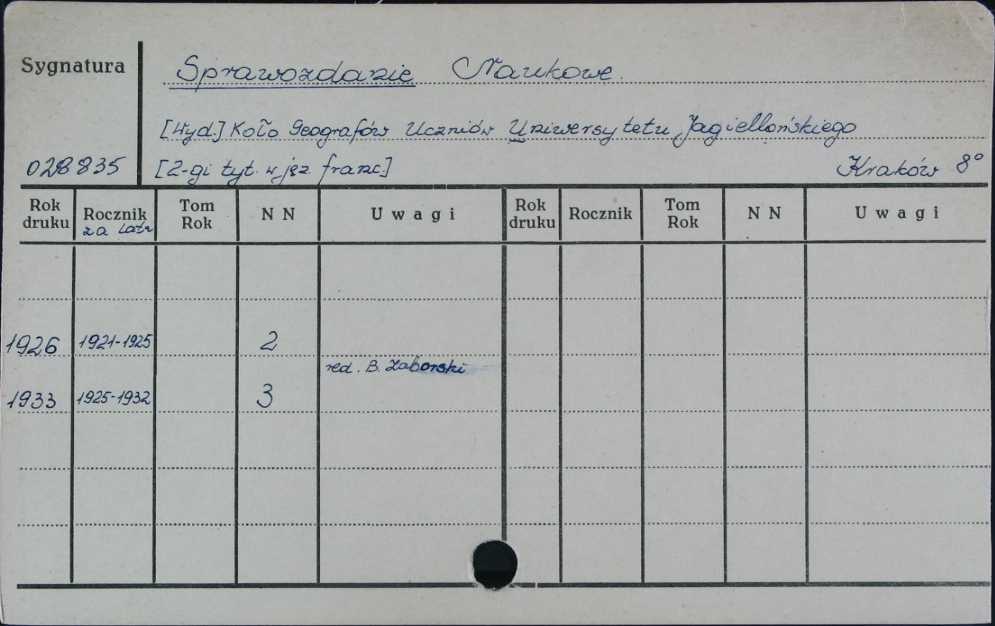 Sygnatura
Sprawozdanie Naukowe.
[Wyd.] Koło Geografów Uczniów Uniwersytetu Jagiellońskiego
028835 [2-gi tyt. w jęz franc] Kraków 8°
Rok druku Rocznik za lata Tom Rok N N Uwagi Rok druku Rocznik Tom Rok N N Uwagi
1926 1921-1925 2
red. B. Zaborski
1933 1925-1932 3